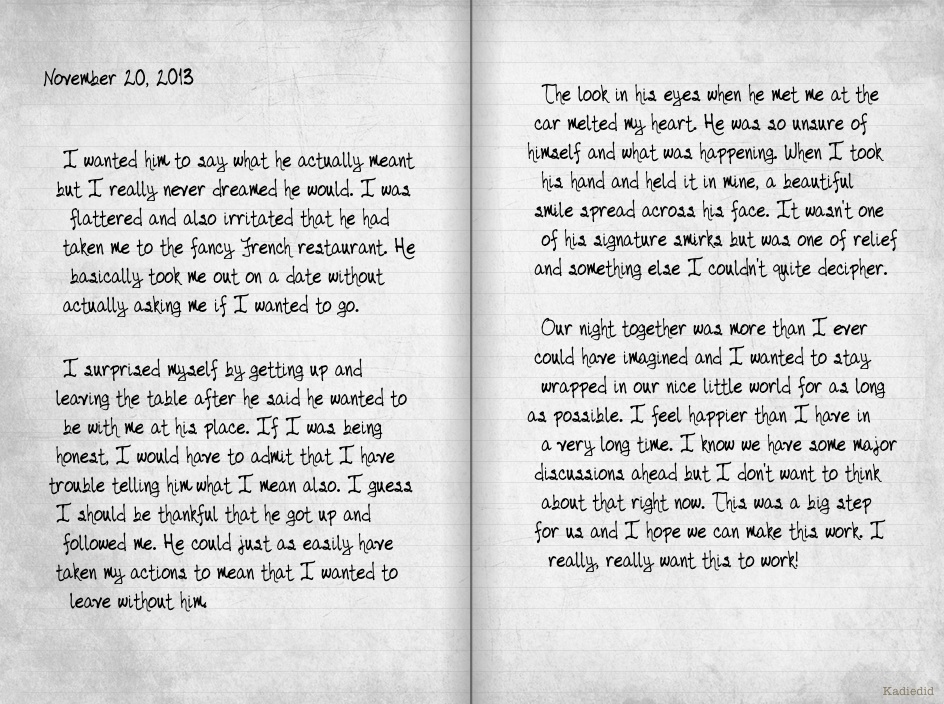 November 20, 2013
I wanted him to say what he actually meant
but I really never dreamed he would. I was
flattered and also irritated that he had
taken me to the fancy French restaurant. He
basically took me out on a date without
actually asking me if I wanted to go.
I surprised myself by getting up and
leaving the table after he said he wanted to
be with me at his place. If I was being
honest, I would have to admit that I have
trouble telling him what I mean also. I guess
I should be thankful that he got up and
followed me. He could just as easily have
taken my actions to mean that I wanted to
leave without him.
The look in his eyes when he met me at the
car melted my heart. He was so unsure of
himself and what was happening. When I took
his hand and held it in mine, a beautiful
smile spread across his face. It wasn't one
of his signature smirks but was one of relief
and something else I couldn't quite decipher.
Our night together was more than I ever
could have imagined and I wanted to stay
wrapped in our nice little world for as long
as possible. I feel happier than I have in
a very long time. I know we have some major
discussions ahead but I don't want to think
about that right now. This was a big step
for us and I hope we can make this work. I
really, really want this to work!
Kadiedid